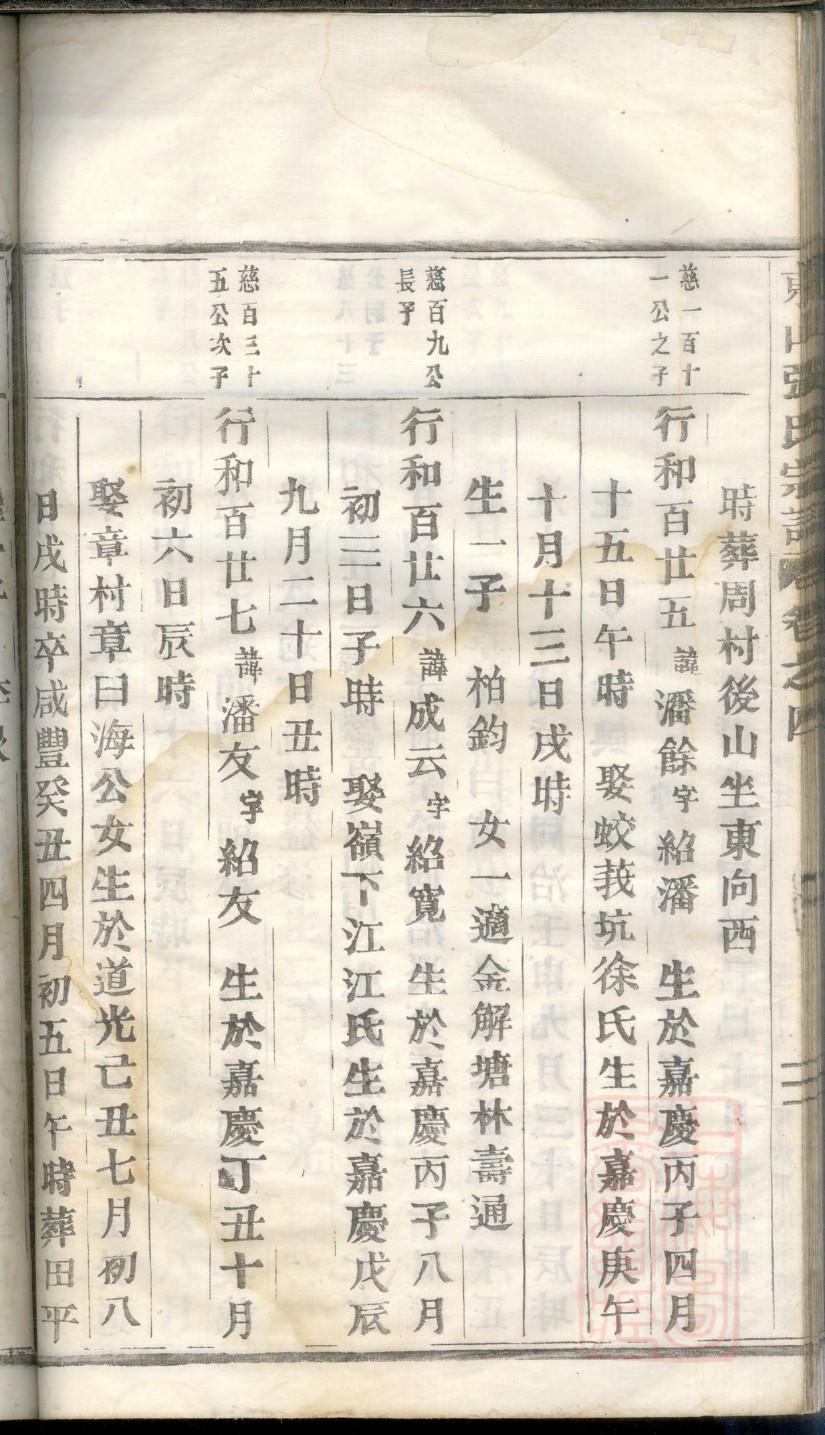 張氏宗譜卷之四
時葬周村後山坐東向西
慈一百十
一公之子
行和百廿五諱潘餘字紹潘 生於嘉慶丙子四月
十五日午時 娶蛟莪坑徐氏生於嘉慶庚午
十月十三日戌時
生一子 柏鈞 女一適金解塘林壽通
慈百九公
長子
行和百廿六諱成云字紹寬 生於嘉慶丙子八月
初三日子時 娶嶺下江江氏生於嘉慶戊辰
九月二十日丑時
慈百三十
五公次子
行和百廿七諱潘友字紹友 生於嘉慶丁丑十月
初六日辰時
娶章村章曰海公女生於道光己丑七月初八
日戌時卒咸豐癸丑四月初五日午時葬田平